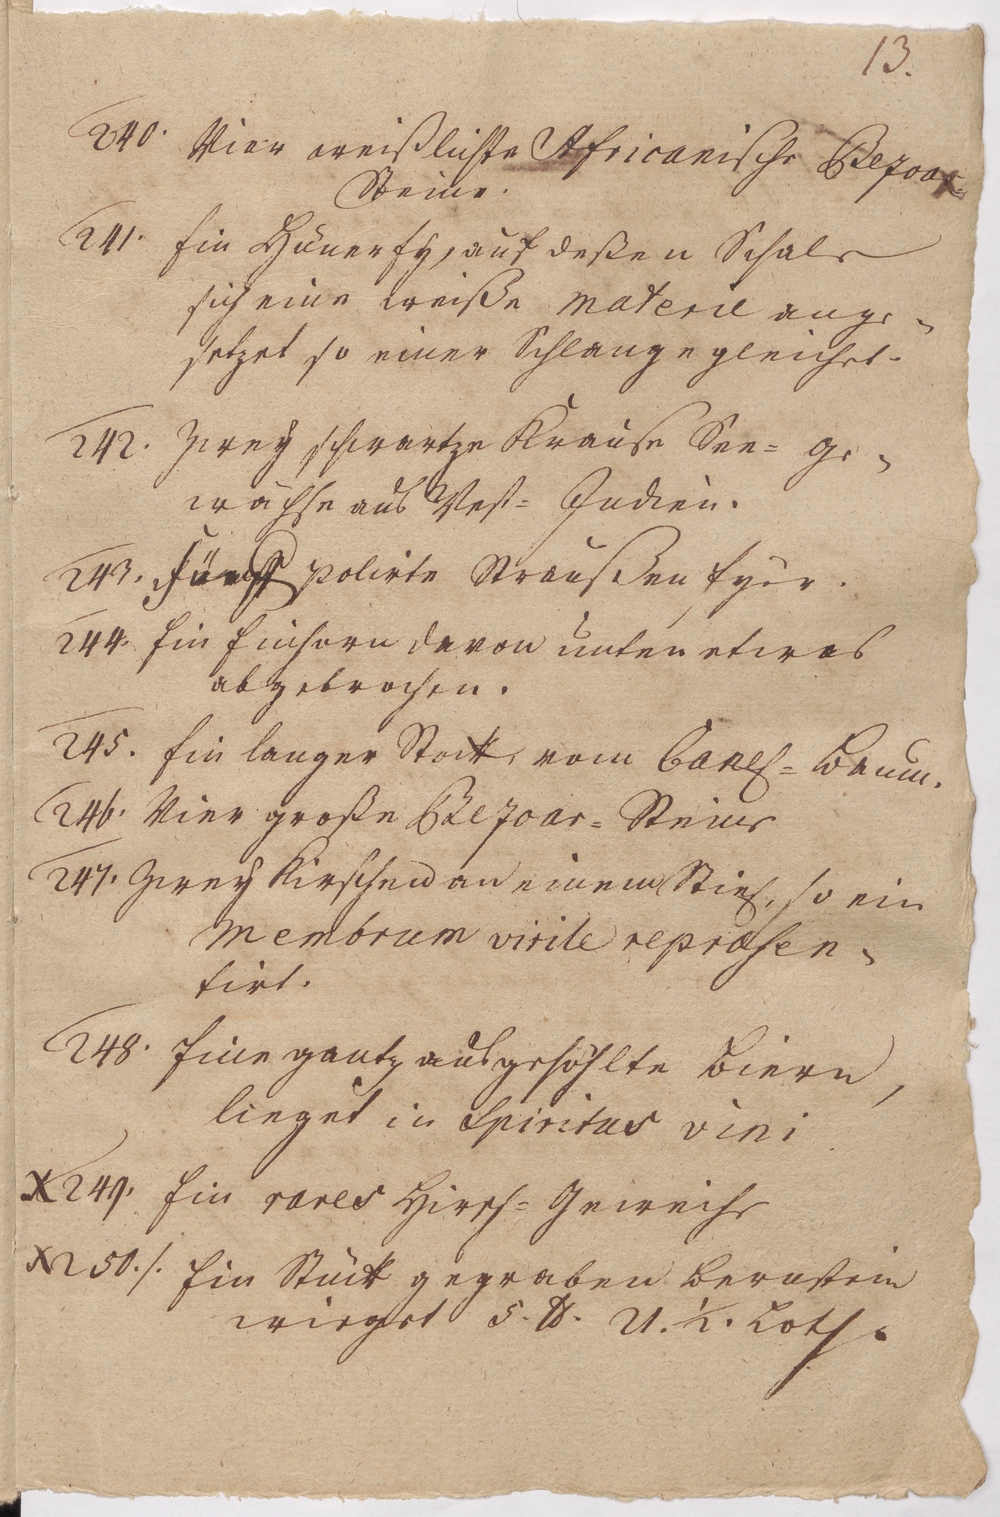 13.
240. Vier weißlichte Africanische Bezoar-
Steine.
241. Ein Hünerey, auf deßen Schale
sich eine weiße Materie ange-
setzet so einer Schlange gleichet.
242. Zwey schwartze Krause See= Ge-
wächse aus West= Indien.
243. Fünff polirte Straußen Eyer.
244. Ein Einhorn davon unten etwas
abgebrochen.
245. Ein langer Stock, vom Caneel= Baum.
246. Vier große Bezoar= Steine
247. Zwey Kirschen an einem Stiel, so ein
Membrum virile repræsen-
tirt.
248. Eine gantz ausgehöhlte Biern,
lieget in Spiritus vini
X 249. Ein rares Hirsch= Geweihe
X 250. /. Ein Stück gegraben Bernstein
wieget 5. ℔. 21. ½. Loth.